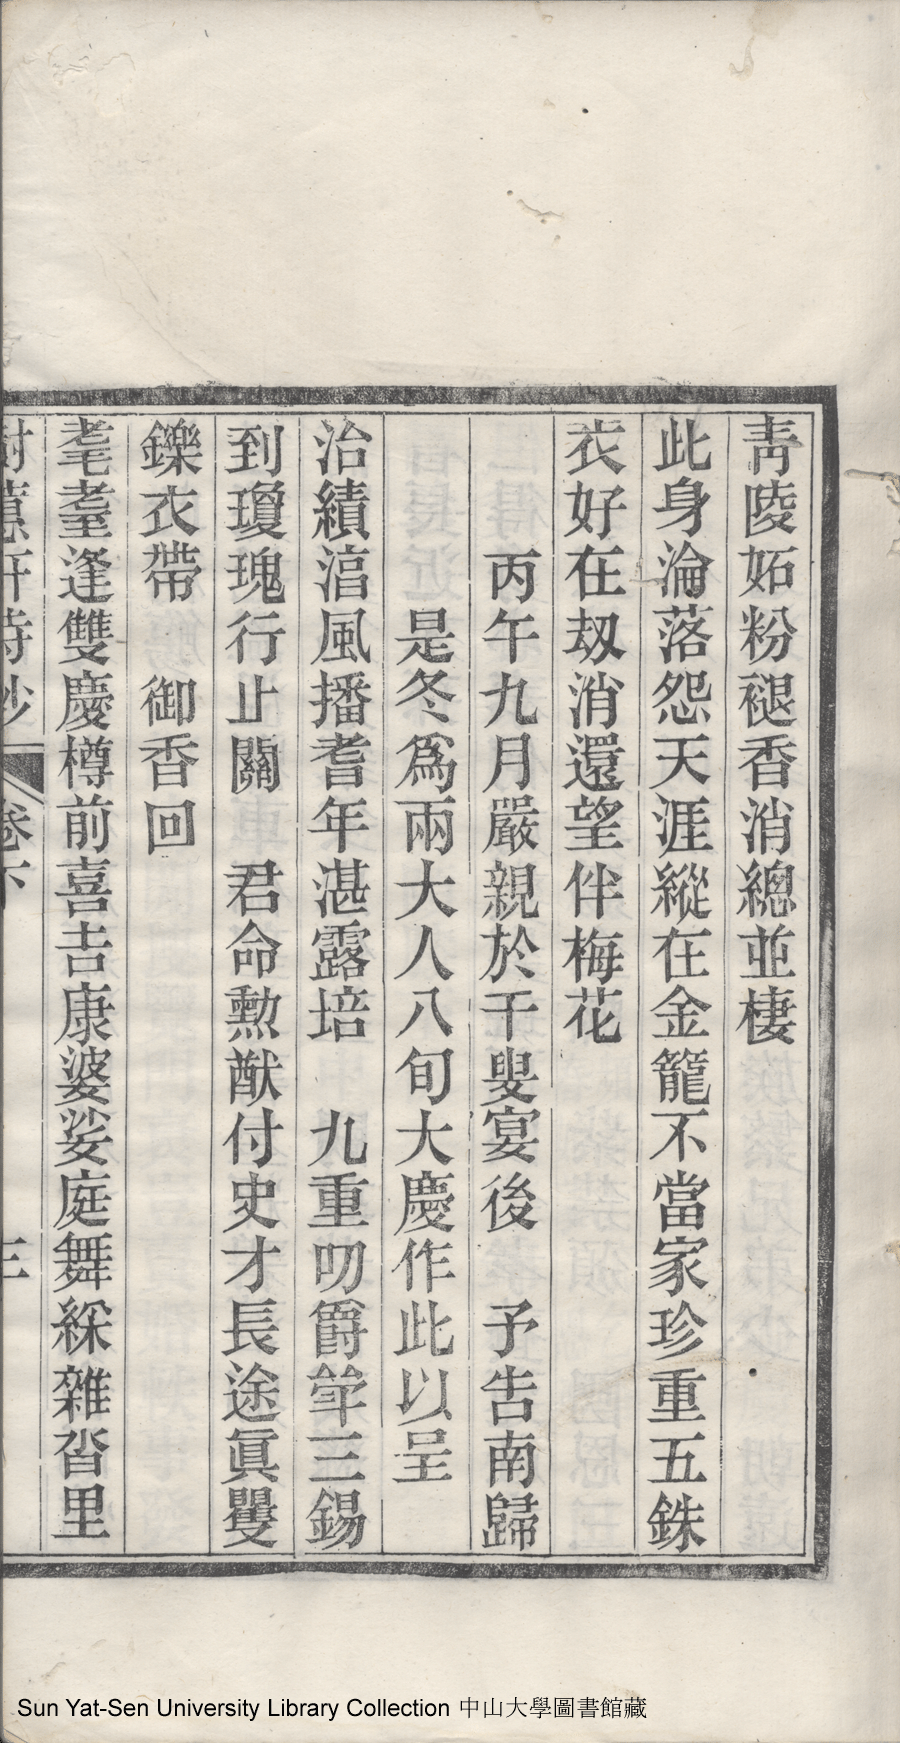 靑陵妬粉褪香消總並棲
此身淪落怨天涯縱在金籠不當家珍重五銖
衣好在刼消還望伴梅花
丙午九月嚴親於干叟宴後　予告南歸
是冬爲兩大人八旬大慶作此以呈
治績湻風播耆年湛露培　九重叨爵斝三錫
到瓊瑰行止關　君命勲猷付史才長途眞矍
鑠衣帶　御香回
耄耋逢雙慶樽前喜吿康婆娑庭舞綵雜沓里
樹蕙軒詩鈔　卷下　三
Sun Yat-Sen University Library Collection 中山大學圖書館藏